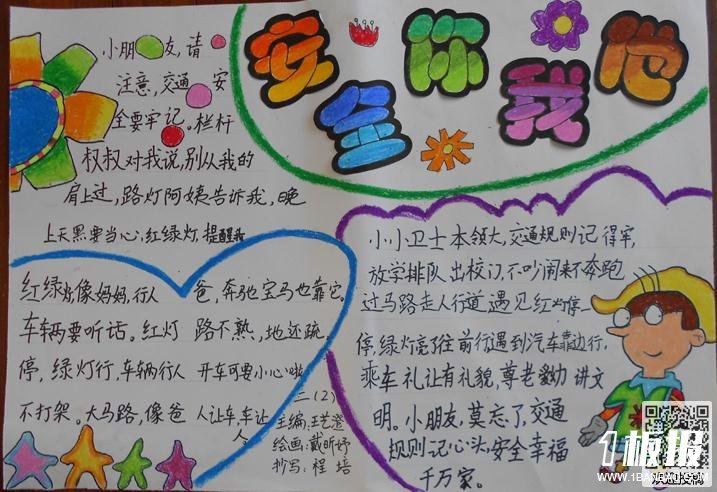 安全你我他
小朋友,请
注意,交通安
全要牢记。栏杆
叔叔对我说,别从我的
肩上过,路灯阿姨告诉我,晚
上天黑要当心,红绿灯,提醒我
红绿灯像妈妈,行人
车辆要听话。红灯
停,绿灯行,车辆行人
不打架。大马路,像爸
爸,奔驰宝马也靠它。
路不熟,地还疏
开车可要小心啦
人让车,车让
人
二(2)
主编:王艺澄
绘画:戴昕妤
抄写:程培
小小卫士本领大,交通规则记得牢,
放学排队出校门,不吵闹来不奔跑
过马路走人行道,遇见红灯停一
停,绿灯亮了往前行遇到汽车靠边行,
乘车礼让有礼貌,尊老爱幼讲文
明。小朋友,莫忘了,交通
规则记心头,安全幸福
千万家。
1板报
WWW.1BANBAO.COM
欢迎投稿